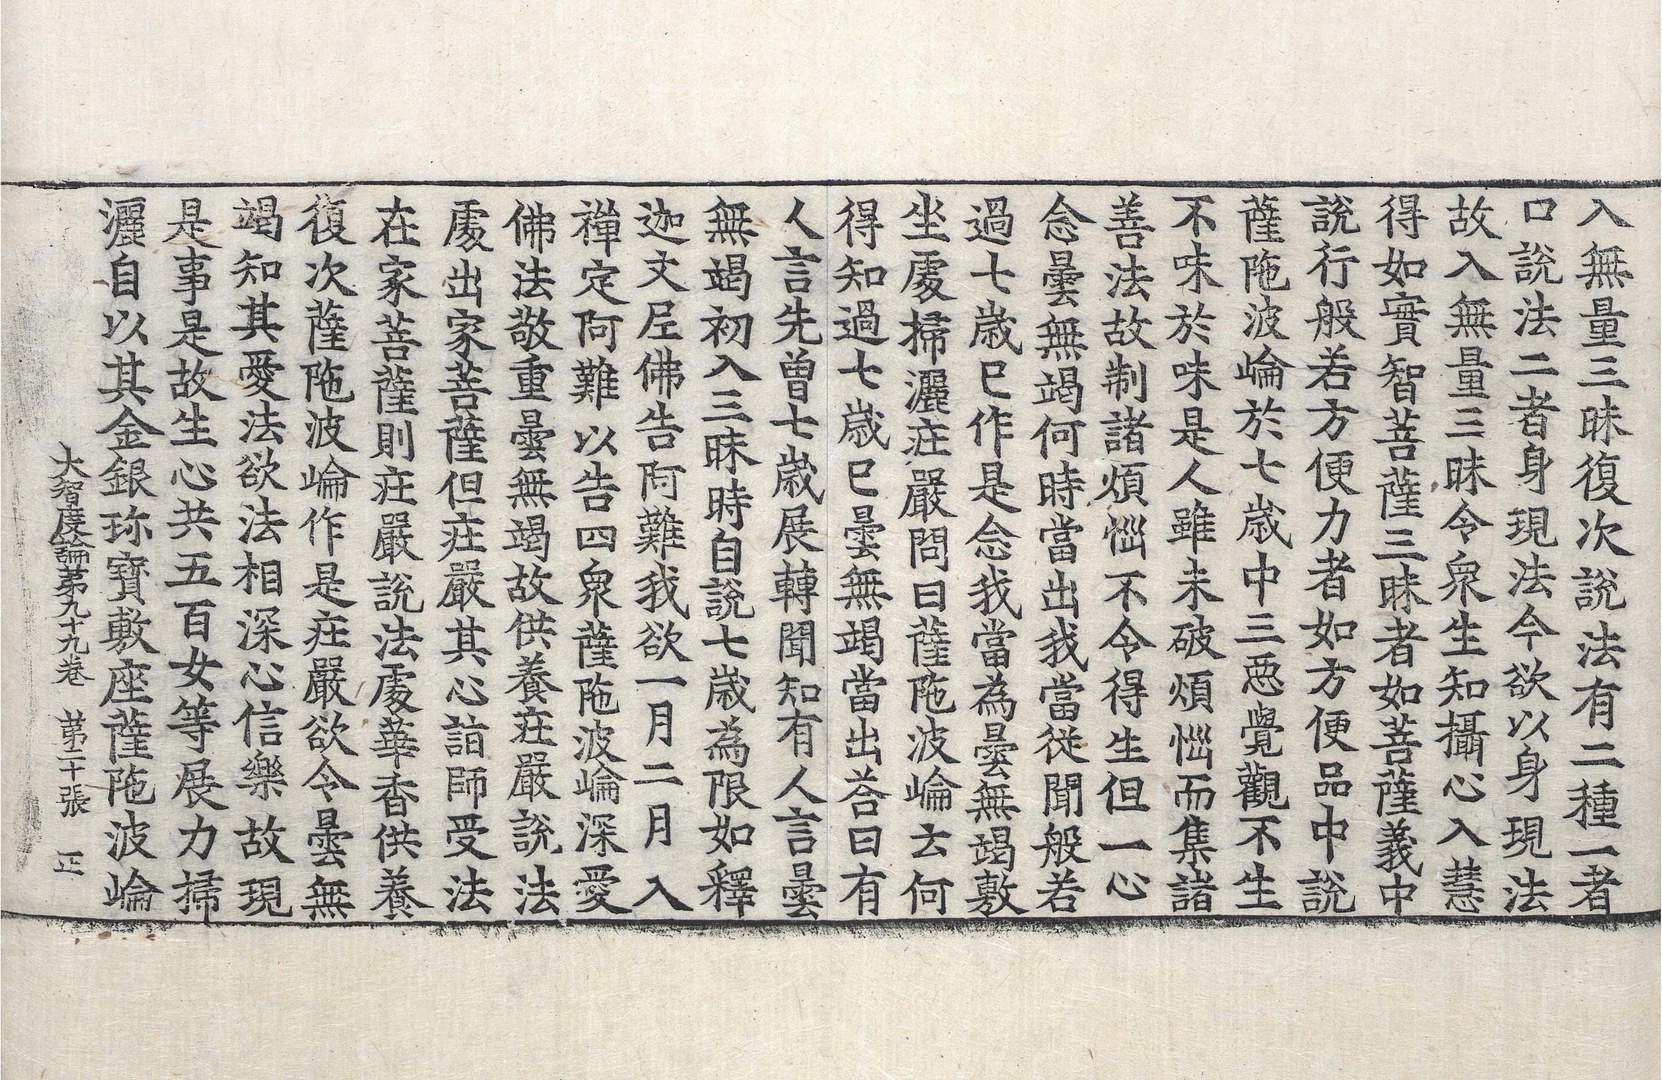 入無量三昧復次說法有二種一者
口說法二者身現法今欲以身現法
故入無量三昧令衆生知攝心入慧
得如實智菩薩三昧者如菩薩義中
說行般若方便力者如方便品中說
薩陁波崘於七歲中三惡覺觀不生
不味於味是人雖未破煩惱而集諸
善法故制諸煩惱不令得生但一心
念曇無竭何時當出我當從聞般若
過七歲已作是念我當為曇無竭敷
坐處掃灑莊嚴問曰薩陁波崘云何
得知過七歲已曇無竭當出荅曰有
人言先曾七歲展轉聞知有人言曇
無竭初入三昧時自說七歲為限如釋
迦文尼佛告阿難我欲一月二月入
禪定阿難以告四衆薩陁波崘深愛
佛法敬重曇無竭故供養莊嚴說法
處出家菩薩但莊嚴其心詣師受法
在家菩薩則莊嚴說法處華香供養
復次薩陁波崘作是莊嚴欲令曇無
竭知其愛法欲法相深心信樂故現
是事是故生心共五百女等展力掃
灑自以其金銀珎寶敷座薩陁波崘
大智度論第九十九卷 第二十張 正